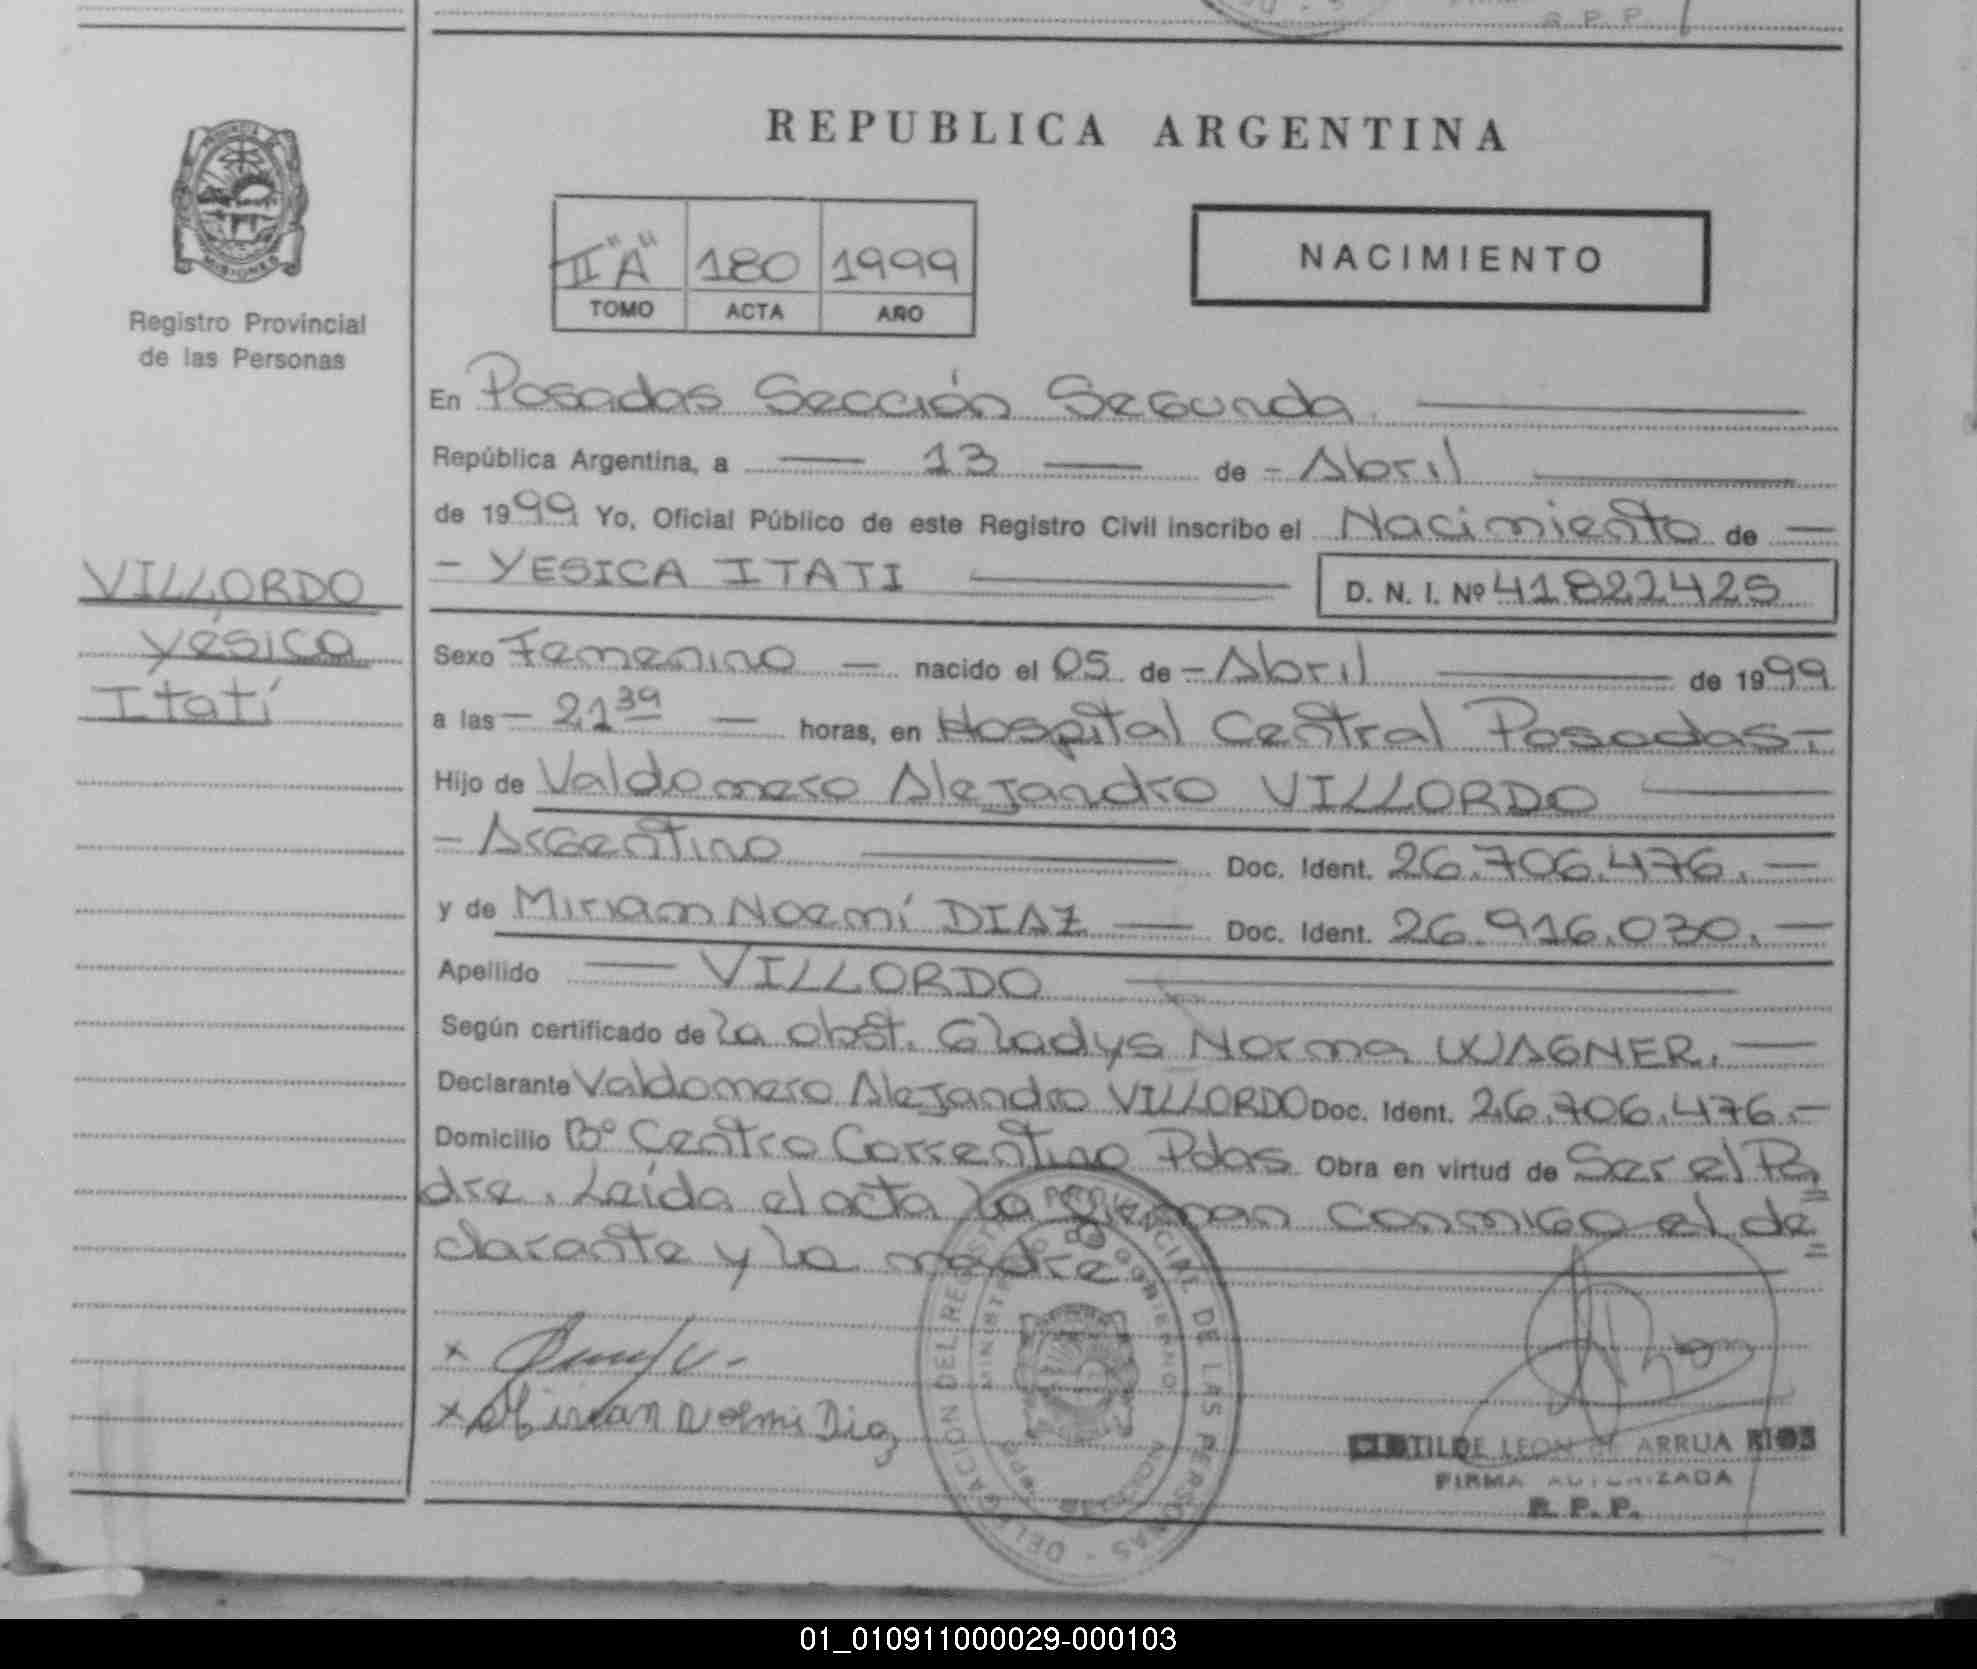 REPUBLICA ARGENTINA
PROVINCIA
MISIONES
Registro Provincial
de las Personas
II "A" 180 1999
TOMO ACTA AÑO
NACIMIENTO
En Posadas Sección Segunda.
República Argentina, a 13 de - Abril
de 1999 Yo, Oficial Público de este Registro Civil inscribo el Nacimiento de
- YESICA ITATI D. N. I. Nº 41822425
VILLORDO
Yésica
Itatí
Sexo Femenino nacido el 05 de - Abril de 1999
a las - 21 39 horas, en Hospital Central Posadas -
Hijo de Valdomero Alejandro VILLORDO
- Argentino Doc. Ident. 26.706.476. -
y de Miriam Noemí DIAZ Doc. Ident. 26.916.030. -
Apellido VILLORDO
Según certificado de la obst. Gladys Norma WAGNER. -
Declarante Valdomero Alejandro VILLORDO Doc. Ident. 26.706.476. -
Domicilio Bº Centro Correntino Pdas. Obra en virtud de Ser el Pa=
dre. Leída el acta la firman conmigo el de=
clarante y la madre
DELEGACION DEL REGISTRO PROVINCIAL DE LAS PERSONAS -
MINISTERIO DE GOBIERNO
x
x Mirian Noemi Diaz
CLOTILDE LEON DE ARRUA RIOS
FIRMA AUTORIZADA
R. P. P.
01_010911000029-000103